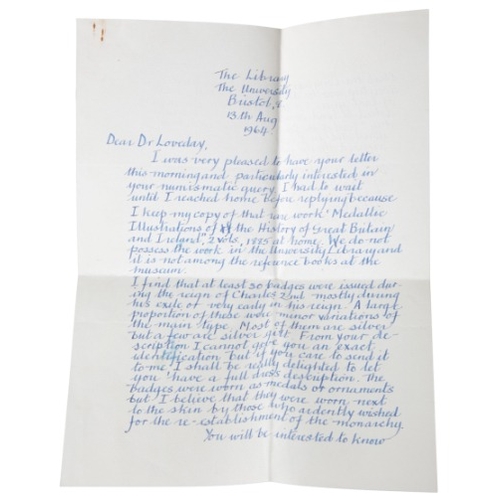 The Library
The University
Bristol, 8
13th Aug
1964
Dear Dr Loveday,
I was very pleased to have your letter
this morning and particularly interested in
your numismatic query. I had to wait
until I reached home before replying because
I keep my copy of that rare work "Medallic
Illustrations of the History of Great Britain
and Ireland", 2 vols, 1885 at home. We do not
possess the work in the University Library and
it is not among the reference books at the
museum.
I find that at least 50 badges were issued dur-
ing the reign of Charles 2nd mostly during
his exile or very early in his reign. A large
proportion of these were minor variations of
the main type. Most of them are silver
but a few are silver gilt. From your de-
scription I cannot give you an exact
identification but if you care to send it
to me I shall be really delighted to let
you have a full description. The
badges were worn as medals or ornaments
but I believe that they were worn next
to the skin by those who ardently wished
for the re-establishment of the monarchy.
You will be interested to know